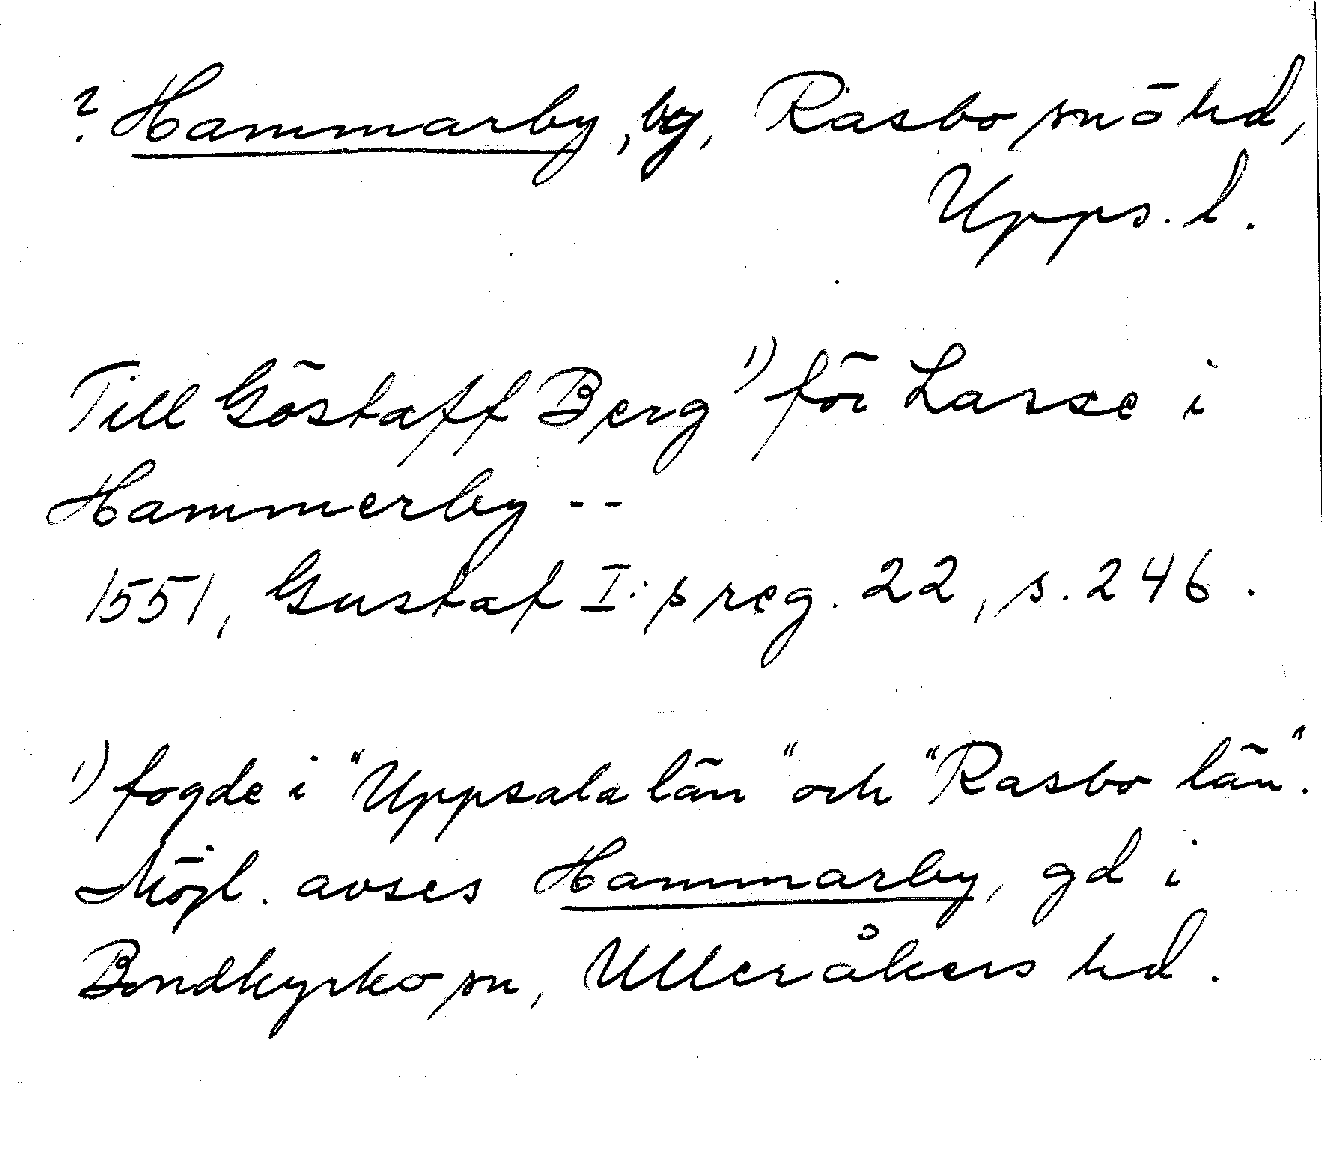 ? Hammarby, by, Rasbo sn o hd,
Upps. l.
Till Göstaff Berg ¹) för Larsse i
Hammerby --
1551, Gustaf I:s reg. 22, s. 246.
¹) fogde i "Uppsala län" och "Rasbo län".
Möjl. avses Hammarby, gd i
Bondkyrko sn, Ulleråkers hd.